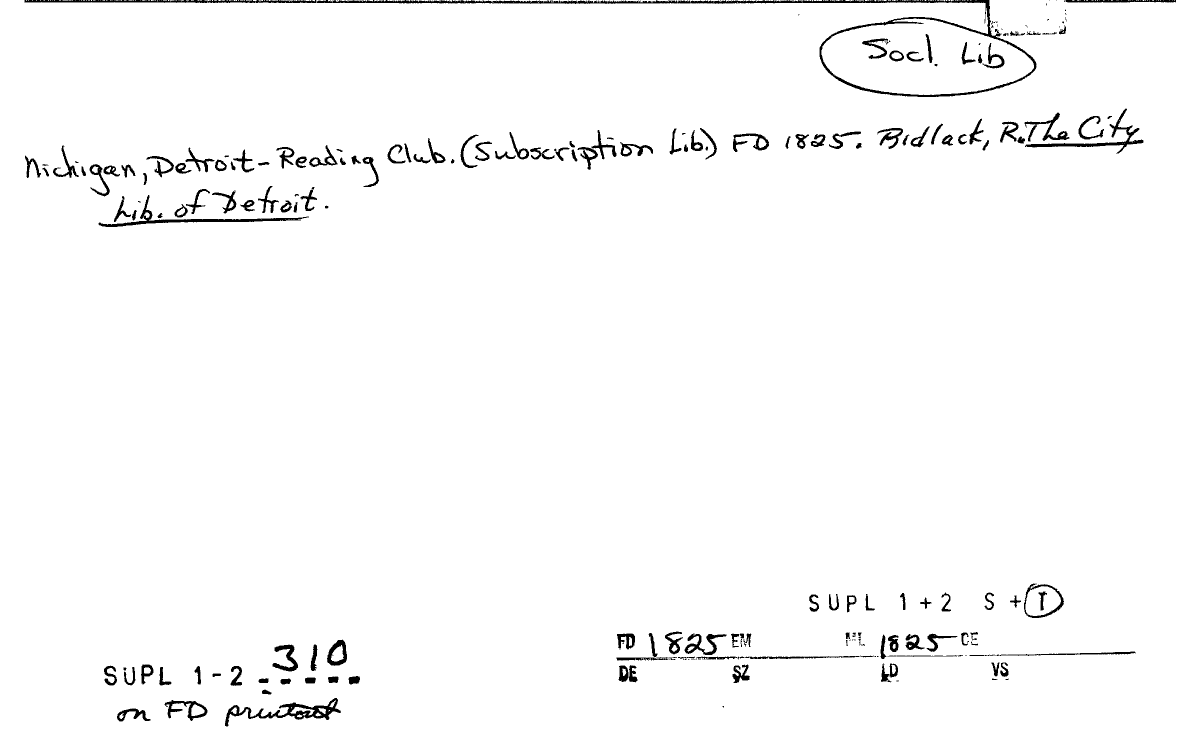 Socl. Lib
Michigan, Detroit - Reading Club. (Subscription Lib.) FD 1825. Bidlack, R. The City
Lib. of Detroit.
SUPL 1+2 S + I
FD 1825 EM ML 1825 CE
DE SZ LD VS
SUPL 1-2 310
on FD printout